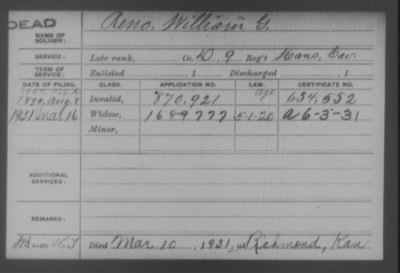 DEAD
NAME OF SOLDIER: Reno, William G.
SERVICE: Late rank, Co. D. 9 Reg't Kans. Cav
TERM OF SERVICE: Enlisted , 1 Discharged , 1
DATE OF FILING. CLASS. APPLICATION NO. LAW. CERTIFICATE NO.
1890. Aug. 8 Invalid, 870,921 634,552
1931 Mar 16 Widow, 1689777 5-1-20 A 6-3-31
Minor,
ADDITIONAL SERVICES:
REMARKS:
Died Mar 10, 1931, at Richmond, Kan